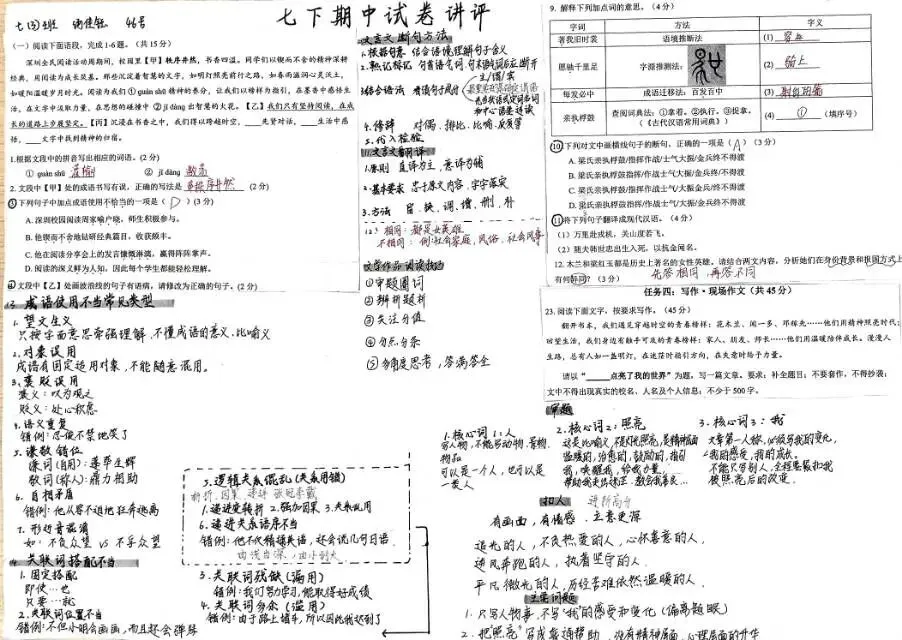 七下期中试卷讲评
七(3)班 46号
(一) 阅读下面语段，完成1-6题。(共15分)
深圳全民阅读活动周期间，校园里【甲】秩序井然，书香四溢。同学们以锲而不舍的精神深耕
经典，用阅读为成长筑基。那些沉淀着智慧的文字，如明灯照亮前行之路，如春雨滋润心灵沃土，
如暖阳温暖岁月时光。阅读为我们① guàn shū 精神的养分，让我们以榜样为指引，在墨香中感悟生
活，在文字中汲取力量，在思想的碰撞中② jī dàng 出智慧的火花。【乙】我们只有坚持阅读，在成
长的道路上步履坚定。【丙】沉浸在书香之中，我们得以跨越时空，____先贤对话，____生活中感
悟，____文字中找到精神的归宿。
1.根据文段中的拼音写出相应的词语。(2分)
① guàn shū 灌输 ② jī dàng 激荡
2. 文段中【甲】处的成语书写有误，正确的写法是 秩序井然 (2分)
3.下列句子中加点成语使用不恰当的一项是( D )(3分)
A. 深圳校园阅读周家喻户晓，师生积极参与。
B. 他锲而不舍地钻研经典篇目，收获颇丰。
C. 他在阅读分享会上的发言慷慨淋漓，赢得阵阵掌声。
D. 阅读的深义鲜为人知，因此每个学生都能轻松理解。
4.文段中【乙】处画波浪线的句子有语病，请修改为正确的句子。(2分)
3 成语使用不当常见类型
1. 望文生义
只按字面意思牵强理解，不懂成语的意义、比喻义
2. 对象误用
成语有固定适用对象，不能随意混用。
3. 褒贬误用
褒义：叹为观之
贬义：处心积虑
4. 语义重复
错例：忍俊不禁地笑了
5. 谦敬错位
谦词(自用)：蓬荜生辉
敬词(称人)：鼎力相助
6. 自相矛盾
错例：他从容不迫地狂奔逃离
7. 形近音混淆
如：不负众望 VS 不孚众望
4 关联词搭配不当
1. 固定搭配
即使…也
只要…就
2. 关联词位置不当
错例：不但小明会画画，而且还会弹琴
3. 逻辑关系混乱(关系用错)
转折、因果、递进 张冠李戴
1.递进变转折 2.强加因果 3.关系乱用
6. 递进关系语序不当
错例：他不仅精通英语，还会说几句日语
由浅到深，由小到大
3. 关联词残缺(漏用)
错例：我们努力学习，能取得好成绩
4. 关联词多余(滥用)
错例：由于路上堵车，所以因此我迟到了
文言文断句方法
1. 根据句意 结合语境理解句子含义
2. 熟记标记 句首语气词
3.结合语法 看懂句子成分
主/谓/宾
4. 修辞 对偶、排比、比喻、反复等
5. 代入检验
文言文翻译
1.原则 直译为主，意译为辅
2.基本要求 忠于原文内容，字字落实
3.方法 留、换、调、增、删、补
12) 相同：都是女英雄
不相同：例：社会家庭，风俗，社会风事
文学作品阅读技巧
①审题圈词
②辨析题析
③关注分值
④分点分条
⑤多角度思考，答满答全
9. 解释下列加点词的意思。(4分)
字词 方法 字义
著我旧时裳 语境推断法 (1) 穿上
愿驰千里足 字源推测法： (2)
每发必中 成语迁移法：百发百中 (3) 射出的箭
亲执桴鼓 查阅词典法：①拿着。②执行。③捉拿。(《古代汉语常用词典》) (4) ① (填序号)
10 下列对文中画横线句子的断句，正确的一项是( A )(3分)
A. 梁氏亲执桴鼓/指挥作战/士气大振/金兵终不得渡
B. 梁氏亲执桴鼓指挥/作战士气大振/金兵/终不得渡
C. 梁氏亲执桴鼓/指挥作战/士气大振/金兵/终不得渡
D. 梁氏亲执桴鼓指挥/作战士气/大振/金兵终不得渡
11 将下列句子翻译成现代汉语。(4分)
(1) 万里赴戎机，关山度若飞。
(2) 随夫韩世忠出生入死，以抗金闻名。
12. 木兰和梁红玉都是历史上著名的女性英雄，请结合两文内容，分析她们在身份背景和报国方式上
有何异同？(3分) 先答相同，再答不同
任务四：写作·现场作文 (共45分)
23. 阅读下面文字，按要求写作。(45分)
翻开书本，我们遇见穿越时空的青春榜样：花木兰、闻一多、邓稼先……他们用精神照亮时代；
回望生活，我们身边有触手可及的青春榜样：家人、朋友、师长……他们用温暖陪伴成长。漫漫人
生路，总有人如一盏明灯，在迷茫时指引方向，在失意时给予力量。
请以“______点亮了我的世界”为题，写一篇文章。要求：补全题目；不要套作，不得抄袭；
文中不得出现真实的校名、人名及个人信息；不少于500字。
审题
1. 核心词1：人
写人物，不能写动物、景物、
物品
可以是一个人，也可以是
一类人
2. 核心词2：照亮
这是比喻义，不是灯光照亮，是精神层面
温暖的，治愈的，鼓励的，指引
我，唤醒我，给我力量，
3. 核心词3：我
大拿第一人称，必须写我的变化，
我的感受，我的成长。
不能只写别人，全程要联扣我
被照亮后的改变。
扣人 进阶高分
有画面，有情感，立意更深
追光的人，不负热爱的人，心怀善意的人，
逆风奔跑的人，执着坚守的人。
平凡微光的人，历经苦难依然温暖的人。
主要问题
1. 只写人物事，不写“我”的感受和变化(偏离题眼)
2. 把“照亮”写成普通帮助，没有精神层面、心理层面的升华